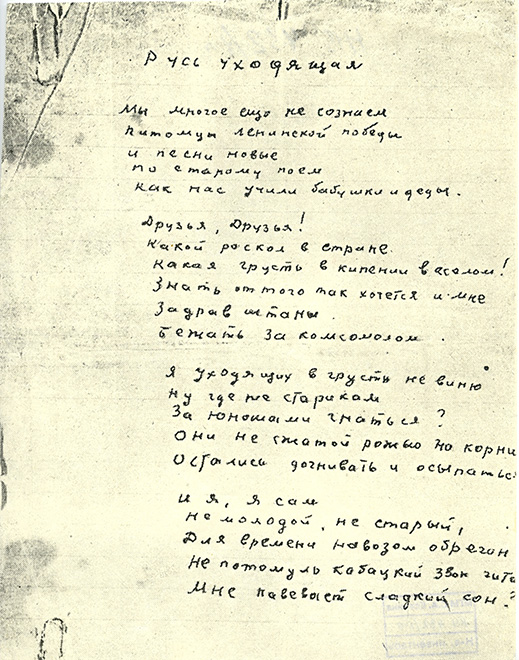 Русь уходящая
Мы многое ещо не сознаем
Питомцы ленинской победы
и песни новые
по старому поем
Как нас учили бабушки и деды.
Друзья, Друзья!
Какой роскол в стране.
Какая грусть в кипении веселом!
Знать оттого так хочется и мне
Задрав штаны.
Бежать за комсомолом.
Я уходящих в грусти не виню
Ну где же старикам
За юношами гнаться?
Они не сжатой рожью на корню
Остались догнивать и осыпаться
И я, я сам
Не молодой, не старый,
Для времени навозом обречен
Не потомуль кабацкий звон
Мне навевает сладкий сон?